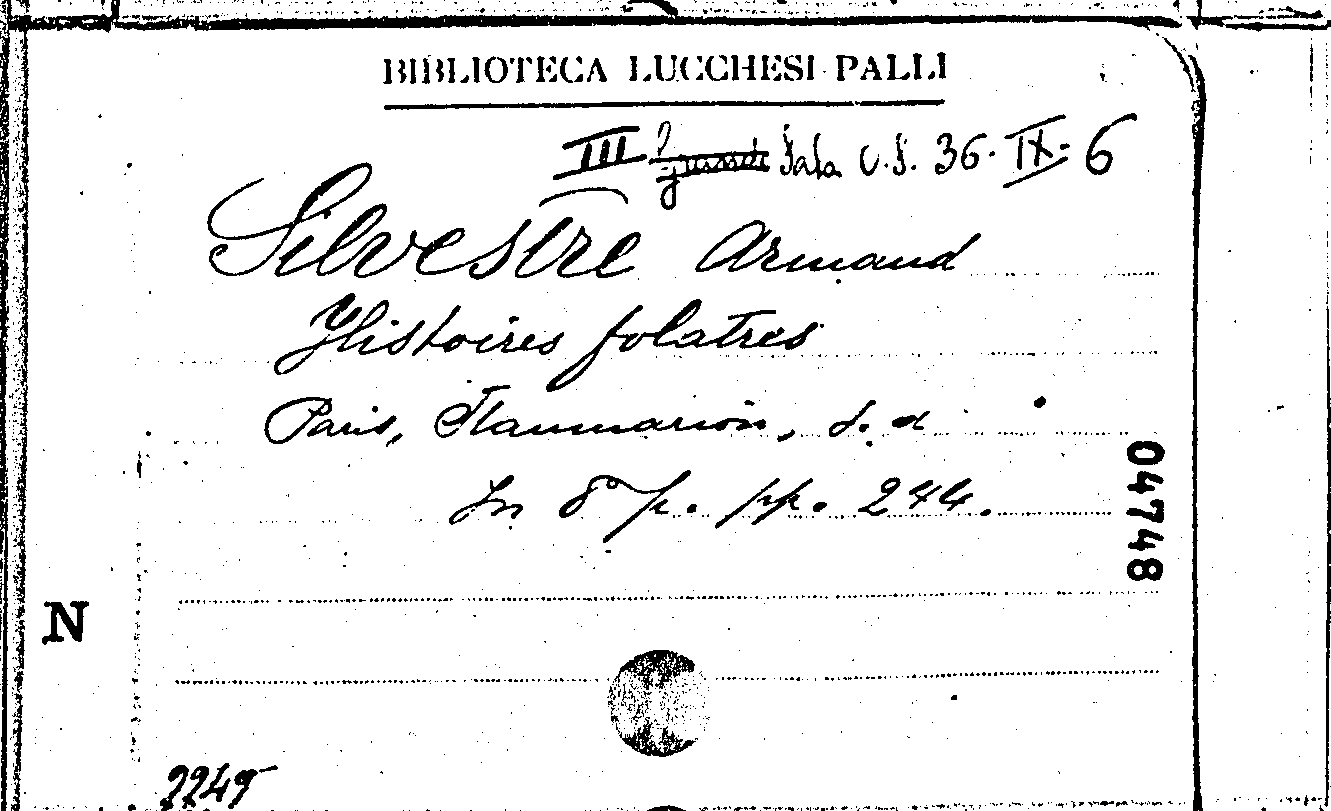 BIBLIOTECA LUCCHESI-PALLI
III Sala U.S. 36. IX. 6
Silvestre Armand
Histoires folatres
Paris, Flammarion, s. d.
In 8° p. pp. 244.
04748
N
2249